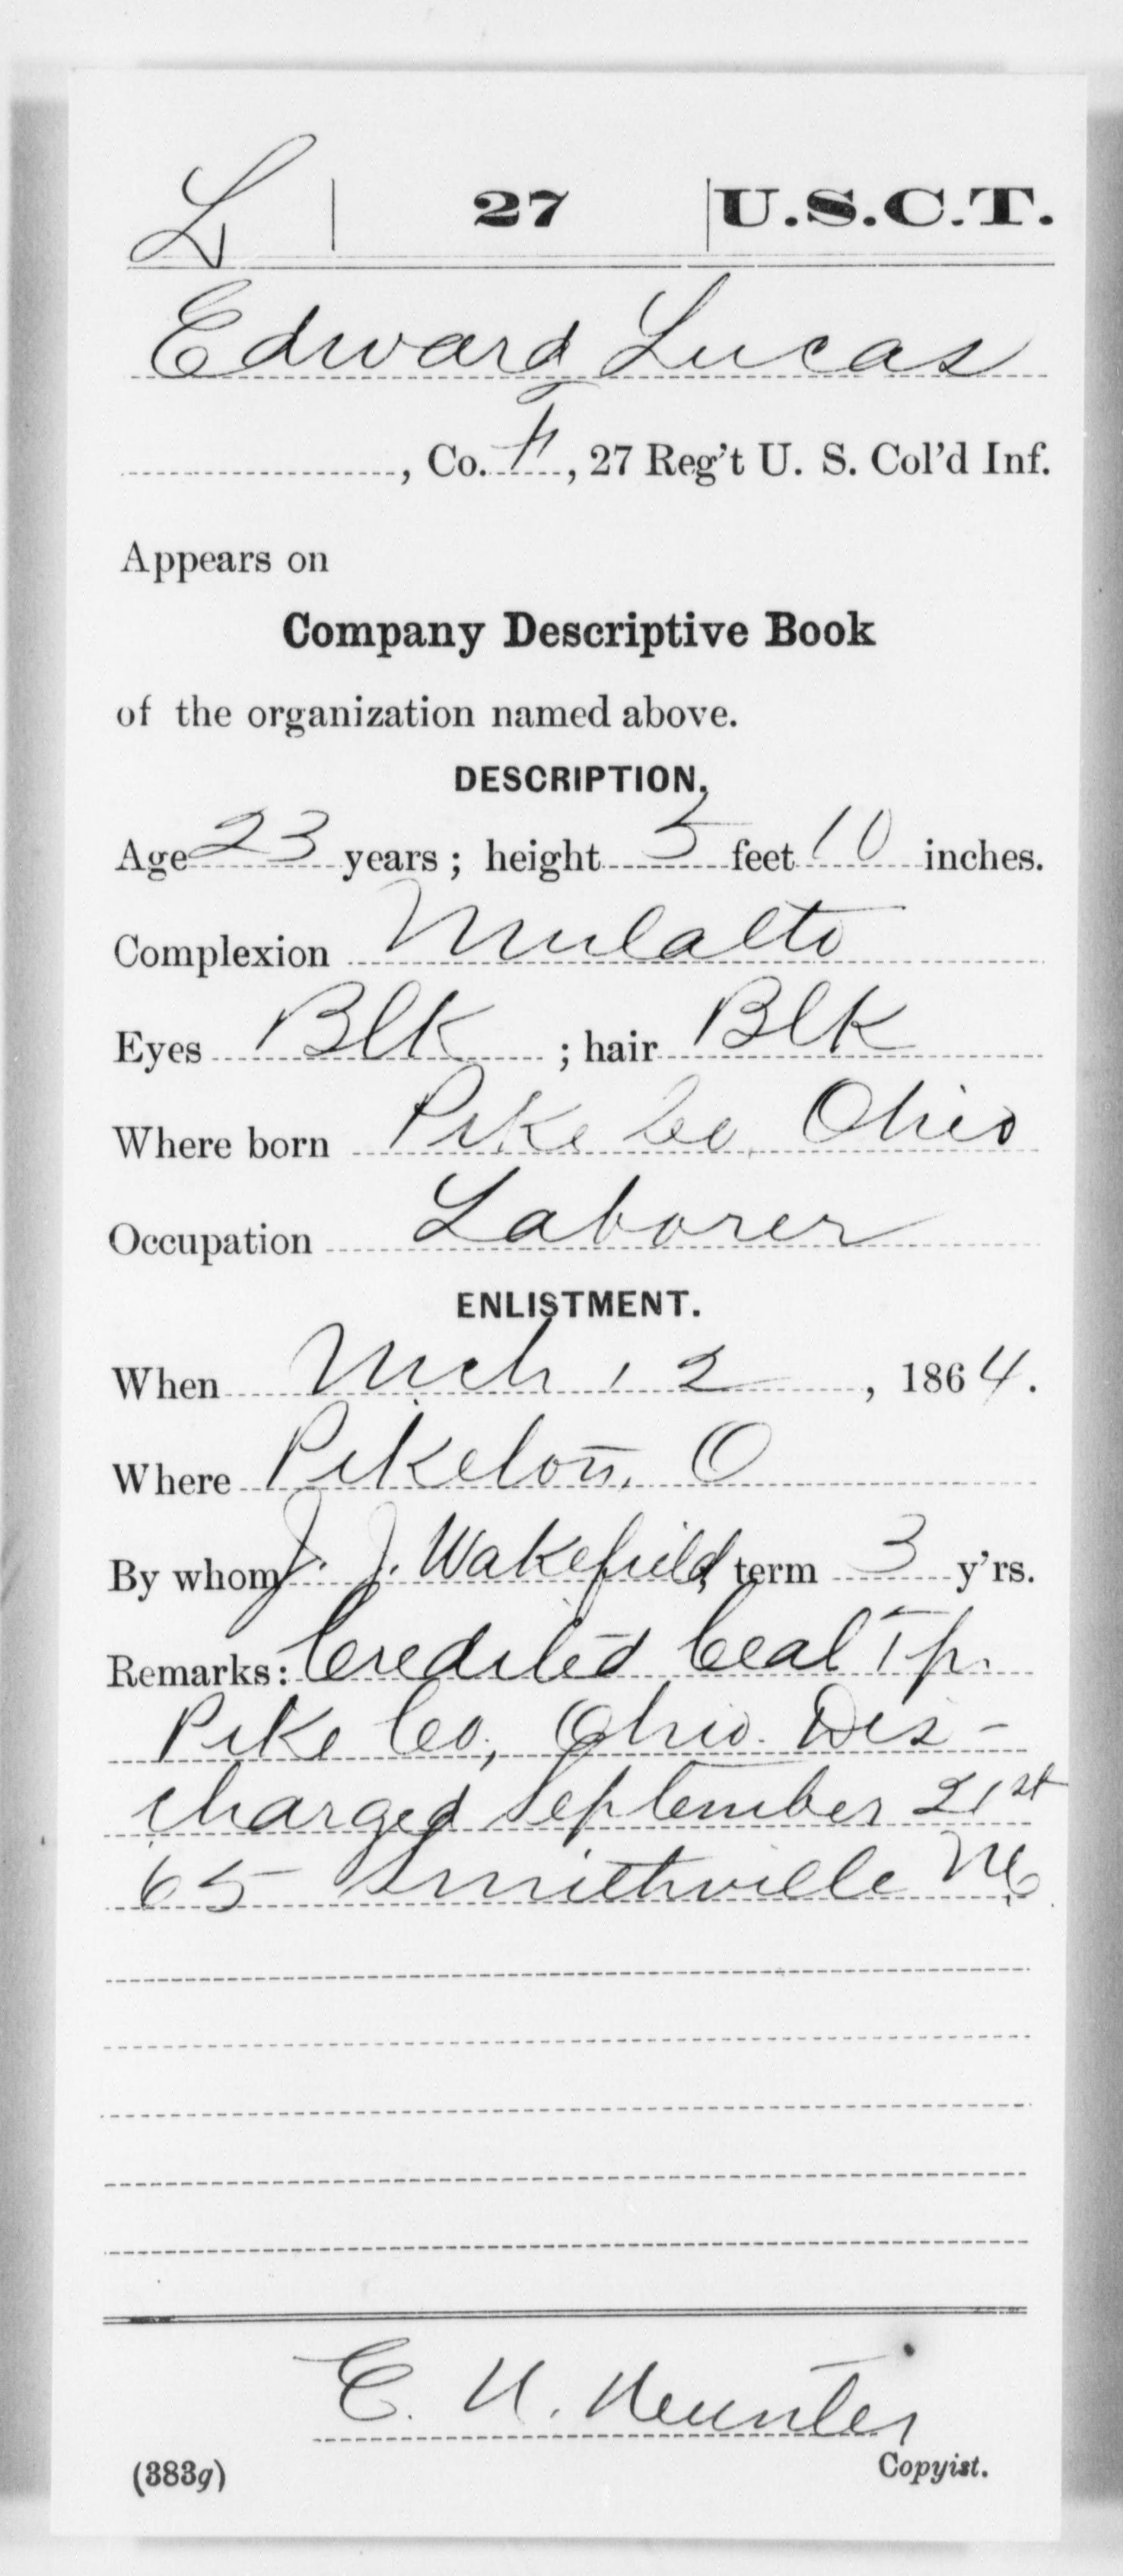 L | 27 | U.S.C.T.
Edward Lucas
, Co. F, 27 Reg't U. S. Col'd Inf.
Appears on
Company Descriptive Book
of the organization named above.
DESCRIPTION.
Age 23 years; height 5 feet 10 inches.
Complexion Mulatto
Eyes Blk ; hair Blk
Where born Pike Co, Ohio
Occupation Laborer
ENLISTMENT.
When Mch 12, 1864.
Where Piketon, O
By whom J. J. Wakefield, term 3 y'rs.
Remarks: Credited Beal Tp.
Pike Co, Ohio. Dis-
charged September 21st
65 Smithville NC
C. H. Hunter
Copyist.
(383g)